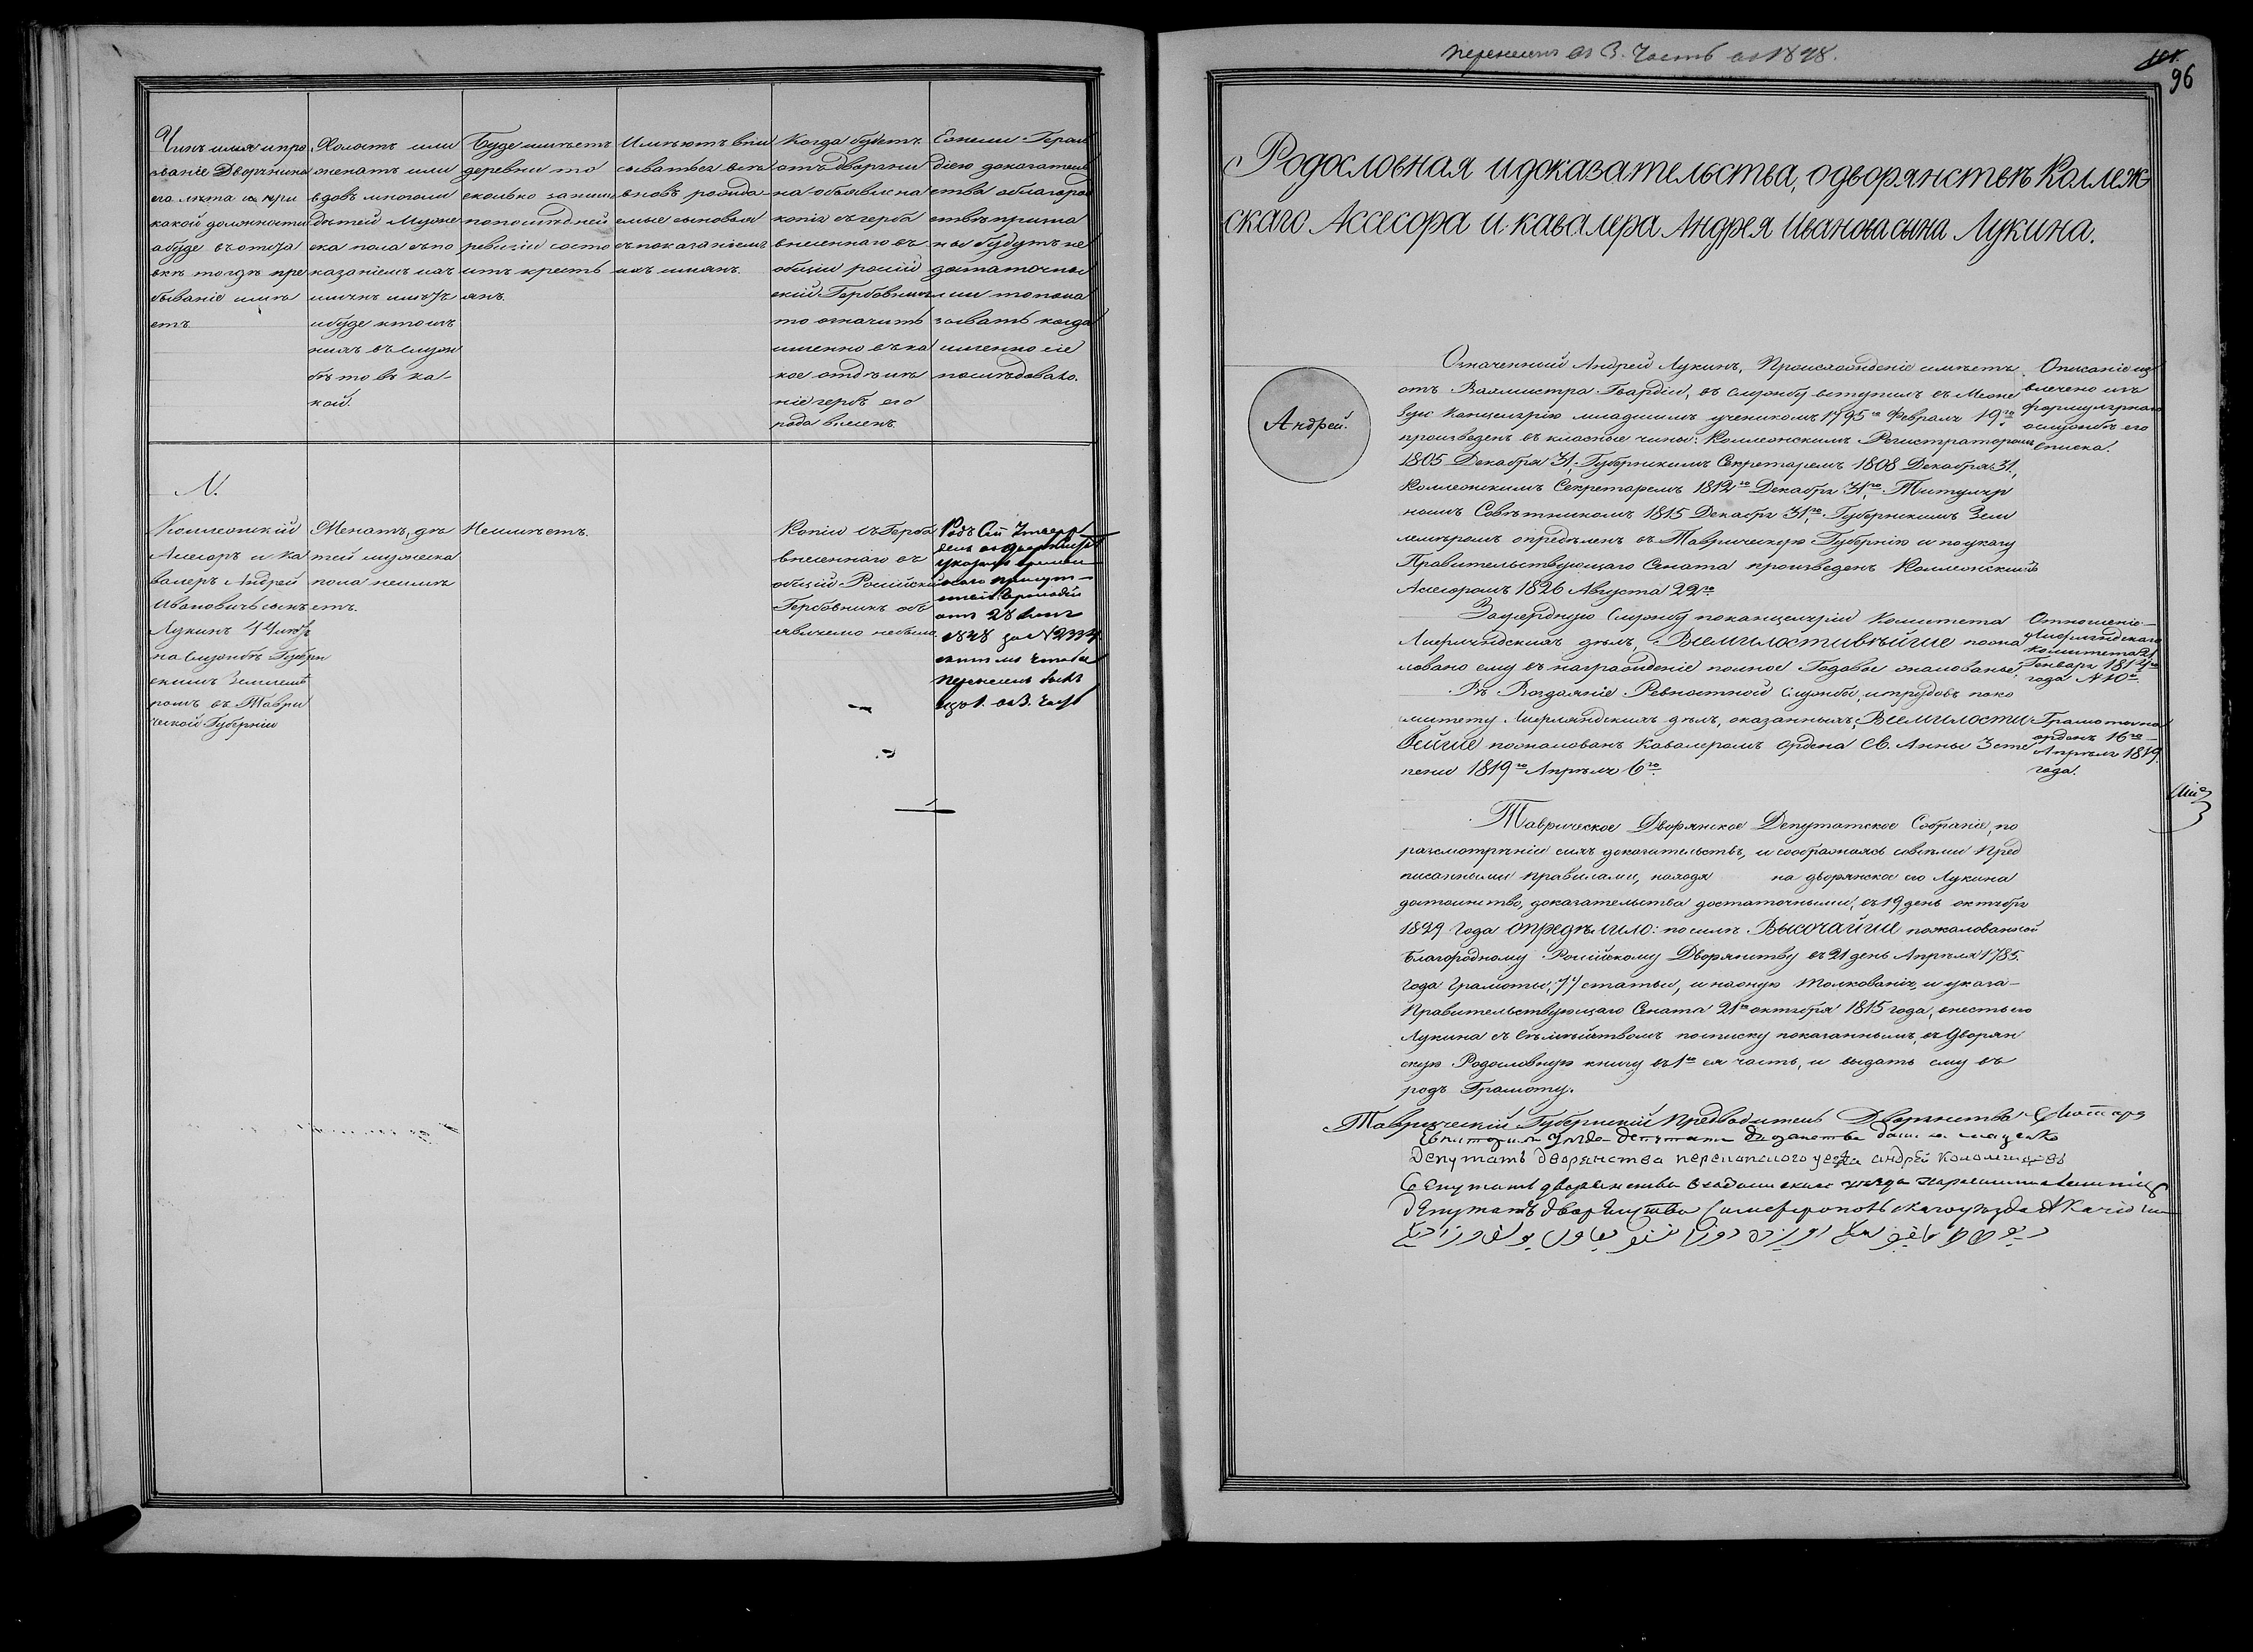 Чинъ имя и про
званіе Дворянина
его лѣта и при
какой должности
а буде въ отста
вкѣ то гдѣ пре
бываніе имѣ
етъ
Холостъ или
женатъ или
вдовъ много ли
дѣтей Муже
ска пола съ по
казаніемъ ихъ
имянъ и лѣтъ
и буде кто изъ
нихъ въ служ
бѣ то въ ка-
кой.
Буде имѣетъ
деревни то
сколько за ним
по послѣдней
ревизіи состо
итъ кресть
янъ.
Имѣютъ впи
сываться всѣ
вновь рожда
емые сыновья
съ показаніемъ
ихъ имянъ.
Когда будетъ
отъ дворяни
на объявлена
копія съ герба
внесеннаго въ
общій россій
скій Гербовникъ
то означить
именно въ ка
кое отдѣле
ніе гербъ его
рода внесенъ
Ежели Герол
діею доказатель
ства о благород
ствѣ призна
ны будутъ не
достаточны
ми то пока
зывать когда
именно сіе
послѣдовало.
N.
Коллежскій
Ассесоръ и ка
валеръ Андрей
Ивановичь сынъ
Лукинъ 44 лѣтъ
на Службѣ Губерн
скимъ Землемѣ
ромъ въ Таври
ческой Губерніи
Женатъ, дѣ
тей мужеска
пола неимѣ
етъ.
Неимѣетъ.
Копіи съ Герба
внесеннаго въ
общій Россійскій
Гербовникъ объ
явлено небыло
Родъ Сей Утверж
денъ въ дворянствѣ
указомъ времен
наго присут-
ствія Герольдіи
отъ 28 Іюля
1848 за N 2334
съ тѣмъ чтобы
перенесенъ былъ
изъ 1. въ 3. часть
перенесенъ въ 3. Часть въ 1848.
96
Родословная и доказательства, о дворянствѣ Коллеж
скаго Ассесора и кавалера Андрея Иванова сына Лукина.
Андрей.
Означенный Андрей Лукинъ, Происхожденіе имѣетъ
отъ Вахмистра Гвардіи, въ службу вступилъ въ Меже
вую Канцелярію младшимъ ученикомъ 1795го Февраля 19го
произведенъ въ класные чины: Коллежскимъ Регистраторомъ
1805 Декабря 31, Губернскимъ Секретаремъ 1808 Декабря 31,
Коллежскимъ Секретаремъ 1812го Декабря 31го Титуляр
нымъ Совѣтникомъ 1815 Декабря 31го Губернскимъ Зем
лемѣромъ опредѣленъ въ Таврическую Губернію и по указу
Правительствующаго Сената произведенъ Коллежскимъ
Ассесоромъ 1826 Августа 22го
Описаніе из
влечено изъ
формулярнаго
о службѣ его
списка.
За усердную Службу по канцеляріи Комитета
Лифляндскихъ дѣлъ, Всемилостивѣйше пожа
ловано ему въ награжденіе полное Годовое жалованье,
Отношеніе
Лифляндскаго
комитета 21
Генваря 1814го
года N 40й.
Въ Воздаяніе Ревностной службы, и трудовъ по ко
митету Лифляндскихъ дѣлъ, оказанныхъ, Всемилости
вейше пожалованъ Кавалеромъ Ордена Св. Анны 3 сте
пени 1819го Апрѣля 6го
Грамота на
орденъ 16го
Апрѣля 1819.
года.
Таврическое Дворянское Депутатское Собраніе, по
разсмотрѣніи сихъ доказательствъ, и соображаясь со всѣми пред
писанными правилами, находя на дворянское его Лукина
достоинство, доказательства достаточными, въ 19 день октября
1829 Года опредѣлило: по силѣ Высочайше пожалованной
Благородному Россійскому Дворянству въ 21 день Апрѣля 1785.
Года Грамоты, 77 статьи, и на оную толкованія, и указа
Правительствующаго Сената 21го октября 1815 года, внесть его
Лукина съ Съмѣйствомъ по списку показаннымъ, въ дворян
скую Родословную книгу въ 1ю ея часть, и выдать ему въ
родъ Грамоту.
Таврическій Губернскій Предводитель Дворянства
депутатъ дворянства перекопского уезда андрей
депутатъ дворянства
депутатъ дворянства Симферопольскаго уезда